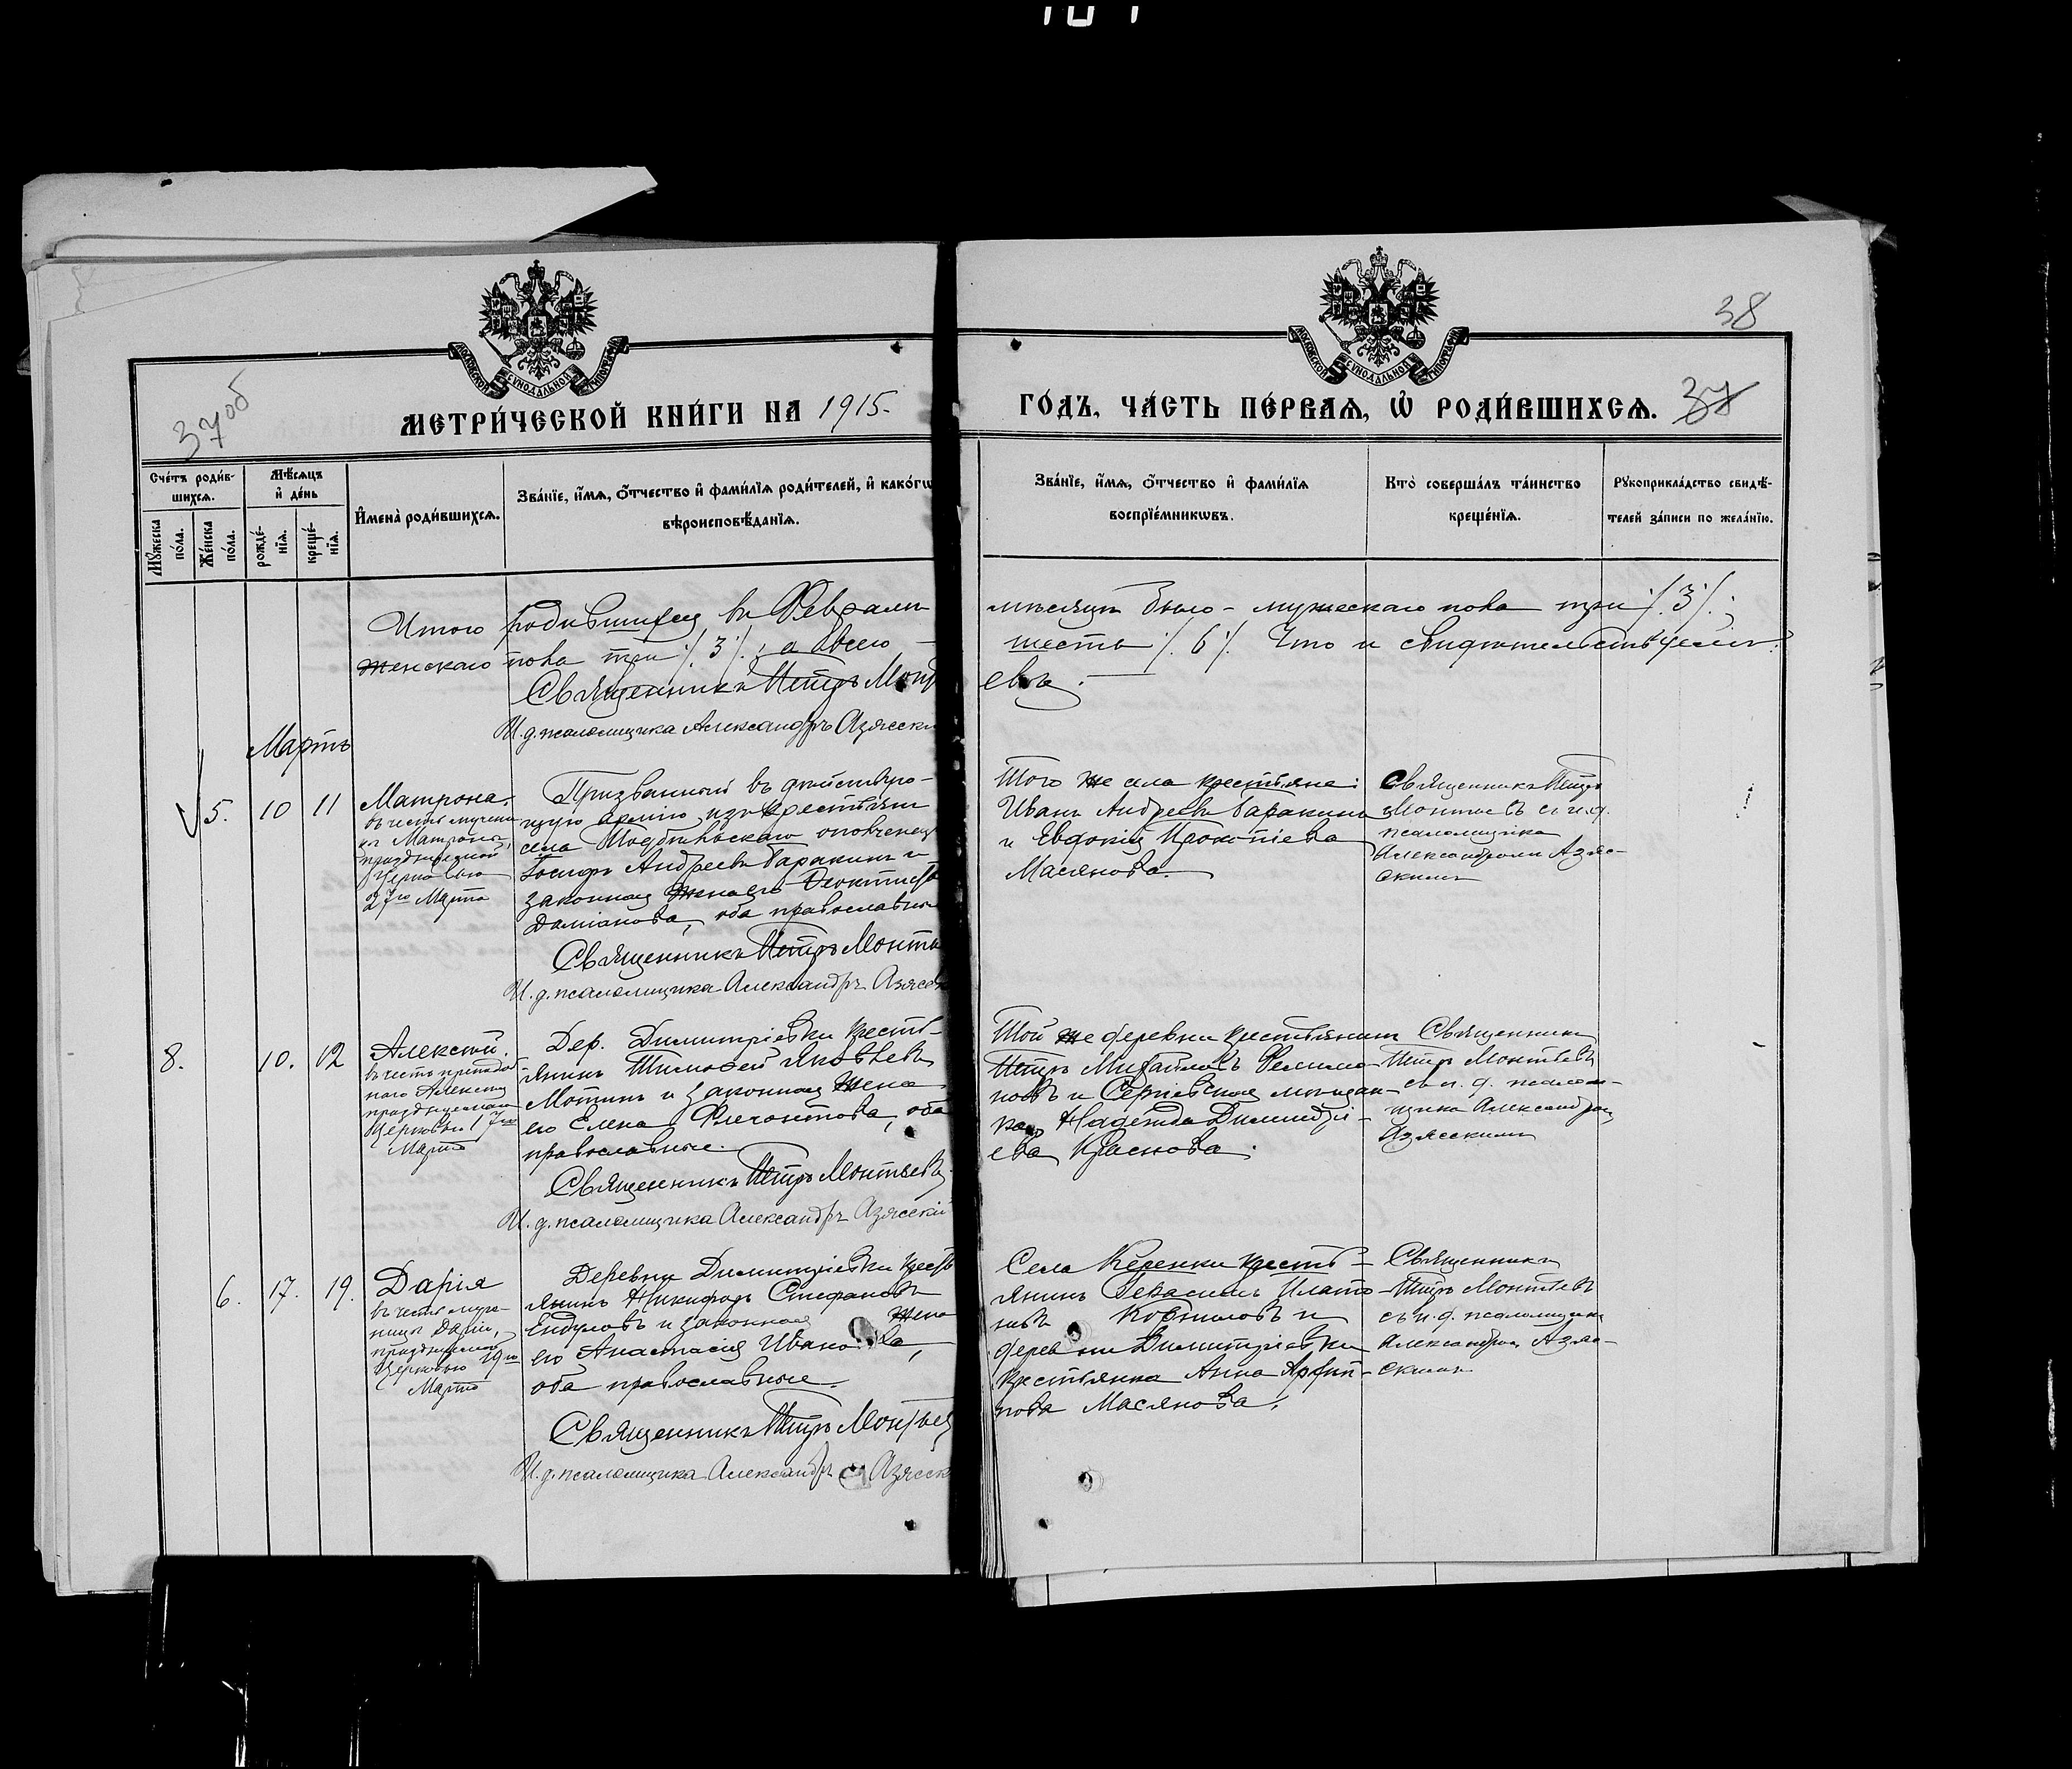 38
37об
МОСКОВСКОЙ СУНОДАЛЬНОЙ ТИПОГРАФІИ
МОСКОВСКОЙ СУНОДАЛЬНОЙ ТИПОГРАФІИ
МЕТРИ́ЧЕСКОЙ КНИ́ГИ НА 1915.
ГО́ДЪ, ЧА́СТЬ ПЕ́РВАѦ, Ѡ҆ РОДИ́ВШИХСѦ. 37
Сче́тъ роди́в-
шихсѧ.
Мꙋжеска по́ла.
Же́нска по́ла.
Мѣ́сѧцъ
и҆ де́нь
рожде́-
нїѧ.
креще́-
нїѧ.
И҆мена̀ роди́вшихсѧ.
Зва́нїе, и҆́мѧ, ѻ҆́тчество и҆ фами́лїѧ роди́телей, и҆ како́гѡ
вѣроисповѣ́данїѧ.
Зва́нїе, и҆́мѧ, ѻ҆́тчество и҆ фами́лїѧ
воспрїе́мникѡвъ.
Кто̀ соверша́лъ та́инство
креще́нїѧ.
Рꙋкоприкла́дство свидѣ́-
телей за́писи по жела́нїю.
Итого родившихся въ Февралѣ
мѣсяцѣ было - мужескаго пола три ·/.3·/.;
женскаго пола три ·/.3·/.; а всего -
шесть ·/.6·/. Что и свидѣтельствуемъ:
Священникъ Петръ Монть
евъ.
И.д.псаломщика Александръ Азясскі
Мартъ
5.
10
11
Матрона,
въ честь мучени
цы Матроны,
празднуемой
Церковью
27го Марта
Призванный въ дѣйствую-
щую армію изъ крестьянъ
села
ополченецъ
Іосифъ Андреевъ Таракинъ и
законная жена его Ѳеоктиста
Даміанова, оба православные
Священникъ Петръ Монтье
И.д.псаломщика Александръ Азясскі
Того же села крестьяне:
Иванъ Андреевъ Таракинъ
и Евдокія
Масянова.
Священникъ Петръ
Монтьевъ съ и.д.
псаломщика
Александромъ Азяс-
скимъ
8.
10.
12
Алексій.
въ честь преподоб
наго Алексія
празднуемаго
Церковью 17го
Марта
Дер. Димитріевки кресть-
янинъ Тимоѳей Яковлевъ
Мотинъ и законная жена
его Елена
оба
православные.
Священникъ Петръ Монтьевъ
И.д.псаломщика Александръ Азясскій
Той же деревни крестьянинъ
Петръ Михайловъ Филимо-
новъ и Сергіевская мѣщан-
ка Надежда Димитрі-
ева Краснова.
Священникъ
Петръ Монтьевъ
съ и.д. псалом-
щика Александромъ
Азясскимъ
6.
17.
19.
Дарія
въ честь муче-
ницы Даріи,
празднуемой
Церковью 19го
Марта
Деревни Димитріевки кресть
янинъ Никифоръ Стефановъ
и законная жена
его Анастасія Иванова,
оба православные.
Священникъ Петръ Монтьев
И.д.псаломщика Александръ Азясск
Села Керенки кресть-
янинъ Герасимъ Плато-
новъ Корниловъ и
деревни Димитріевки
крестьянка Анна Архип-
пова Масянова.
Священникъ
Петръ Монтьевъ
съ и.д. псаломщика
Александромъ Азяс-
скимъ